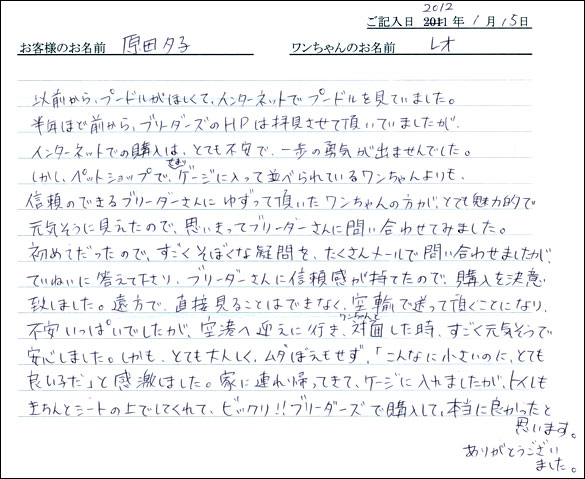 ご記入日 2011 2012 年 1月 15日
お客様のお名前 原田夕子 ワンちゃんのお名前 レオ
以前から、プードルがほしくて、インターネットでプードルを見ていました。
半年ほど前から、ブリーダーズのHPは拝見させて頂いていましたが、
インターネットでの購入は、とても不安で、一歩の勇気が出ませんでした。
しかし、ペットショップで、せまいゲージに入って並べられているワンちゃんよりも、
信頼のできるブリーダーさんにゆずって頂いたワンちゃんの方が、とても魅力的で
元気そうに見えたので、思いきってブリーダーさんに問い合わせてみました。
初めてだったので、すごくそぼくな疑問を、たくさんメールで問い合わせましたが、
ていねいに答えて下さり、ブリーダーさんに信頼感が持てたので、購入を決意
致しました。遠方で、直接見ることはできなく、空輸で送って頂くことになり、
不安いっぱいでしたが、空港へ迎えに行き、ワンちゃんと対面した時、すごく元気そうで
安心しました。しかも、とても大人しく、ムダぼえもせず、「こんなに小さいのに、とても
良い子だ」と感激しました。家に連れ帰ってきて、ケージに入れましたが、トイレも
きちんとシートの上でしてくれて、ビックリ!!ブリーダーズで購入して、本当に良かったと
思います。
ありがとうござい
ました。